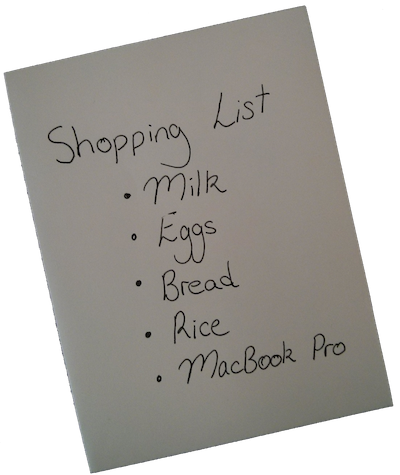 Shopping List
• Milk
• Eggs
• Bread
• Rice
• MacBook Pro